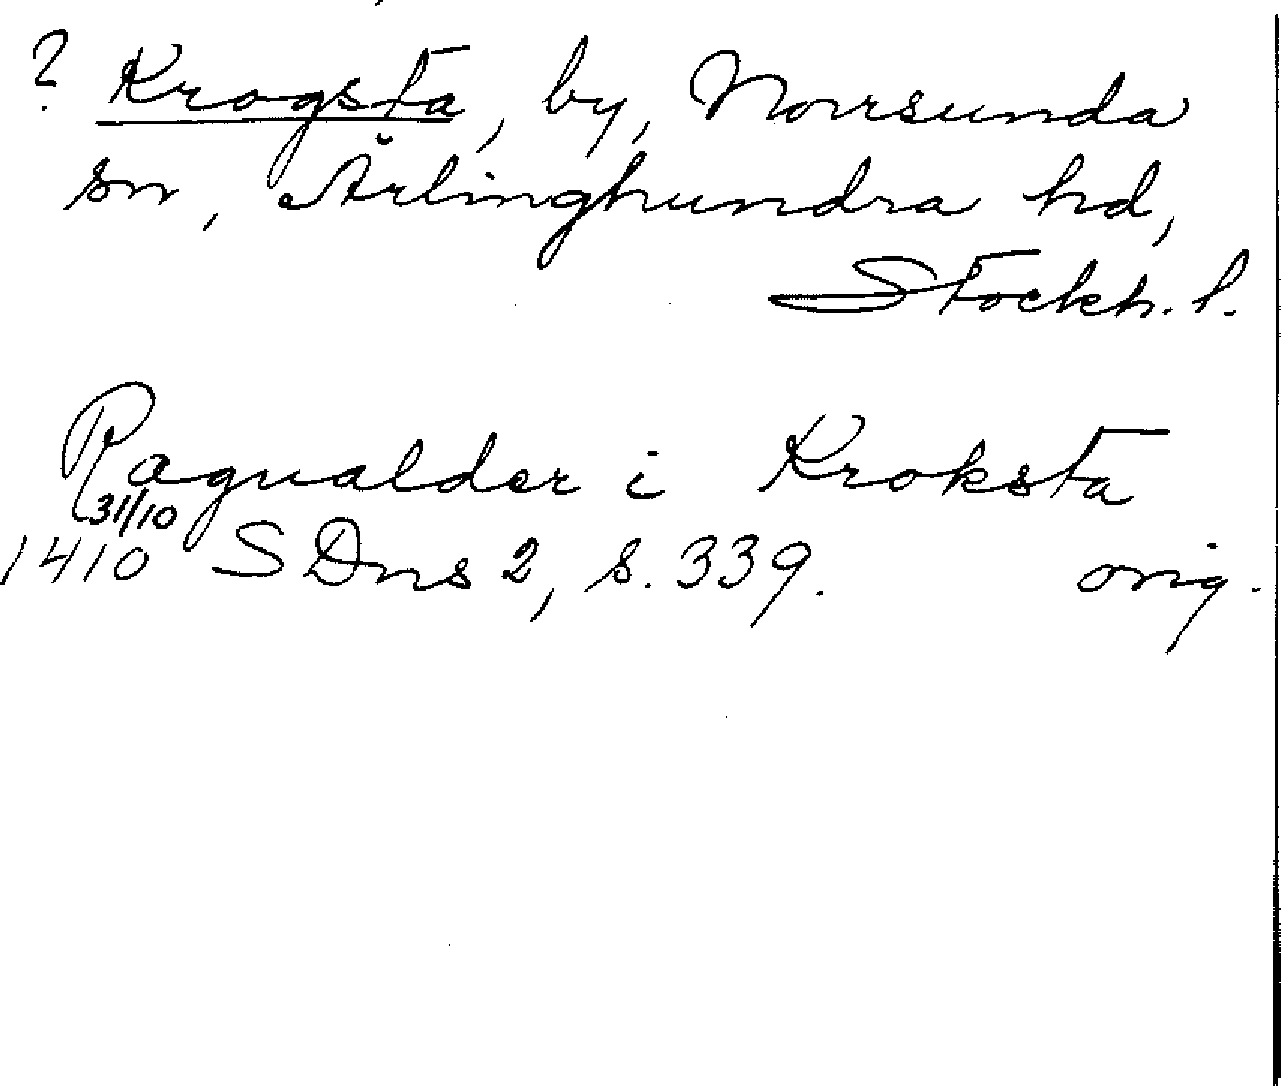 ? Krogsta, by, Norrsunda
sn, Ärlinghundra hd,
Stockh. l.
Ragualder i Kroksta
31/10
1410 SDns 2, s. 339. orig.